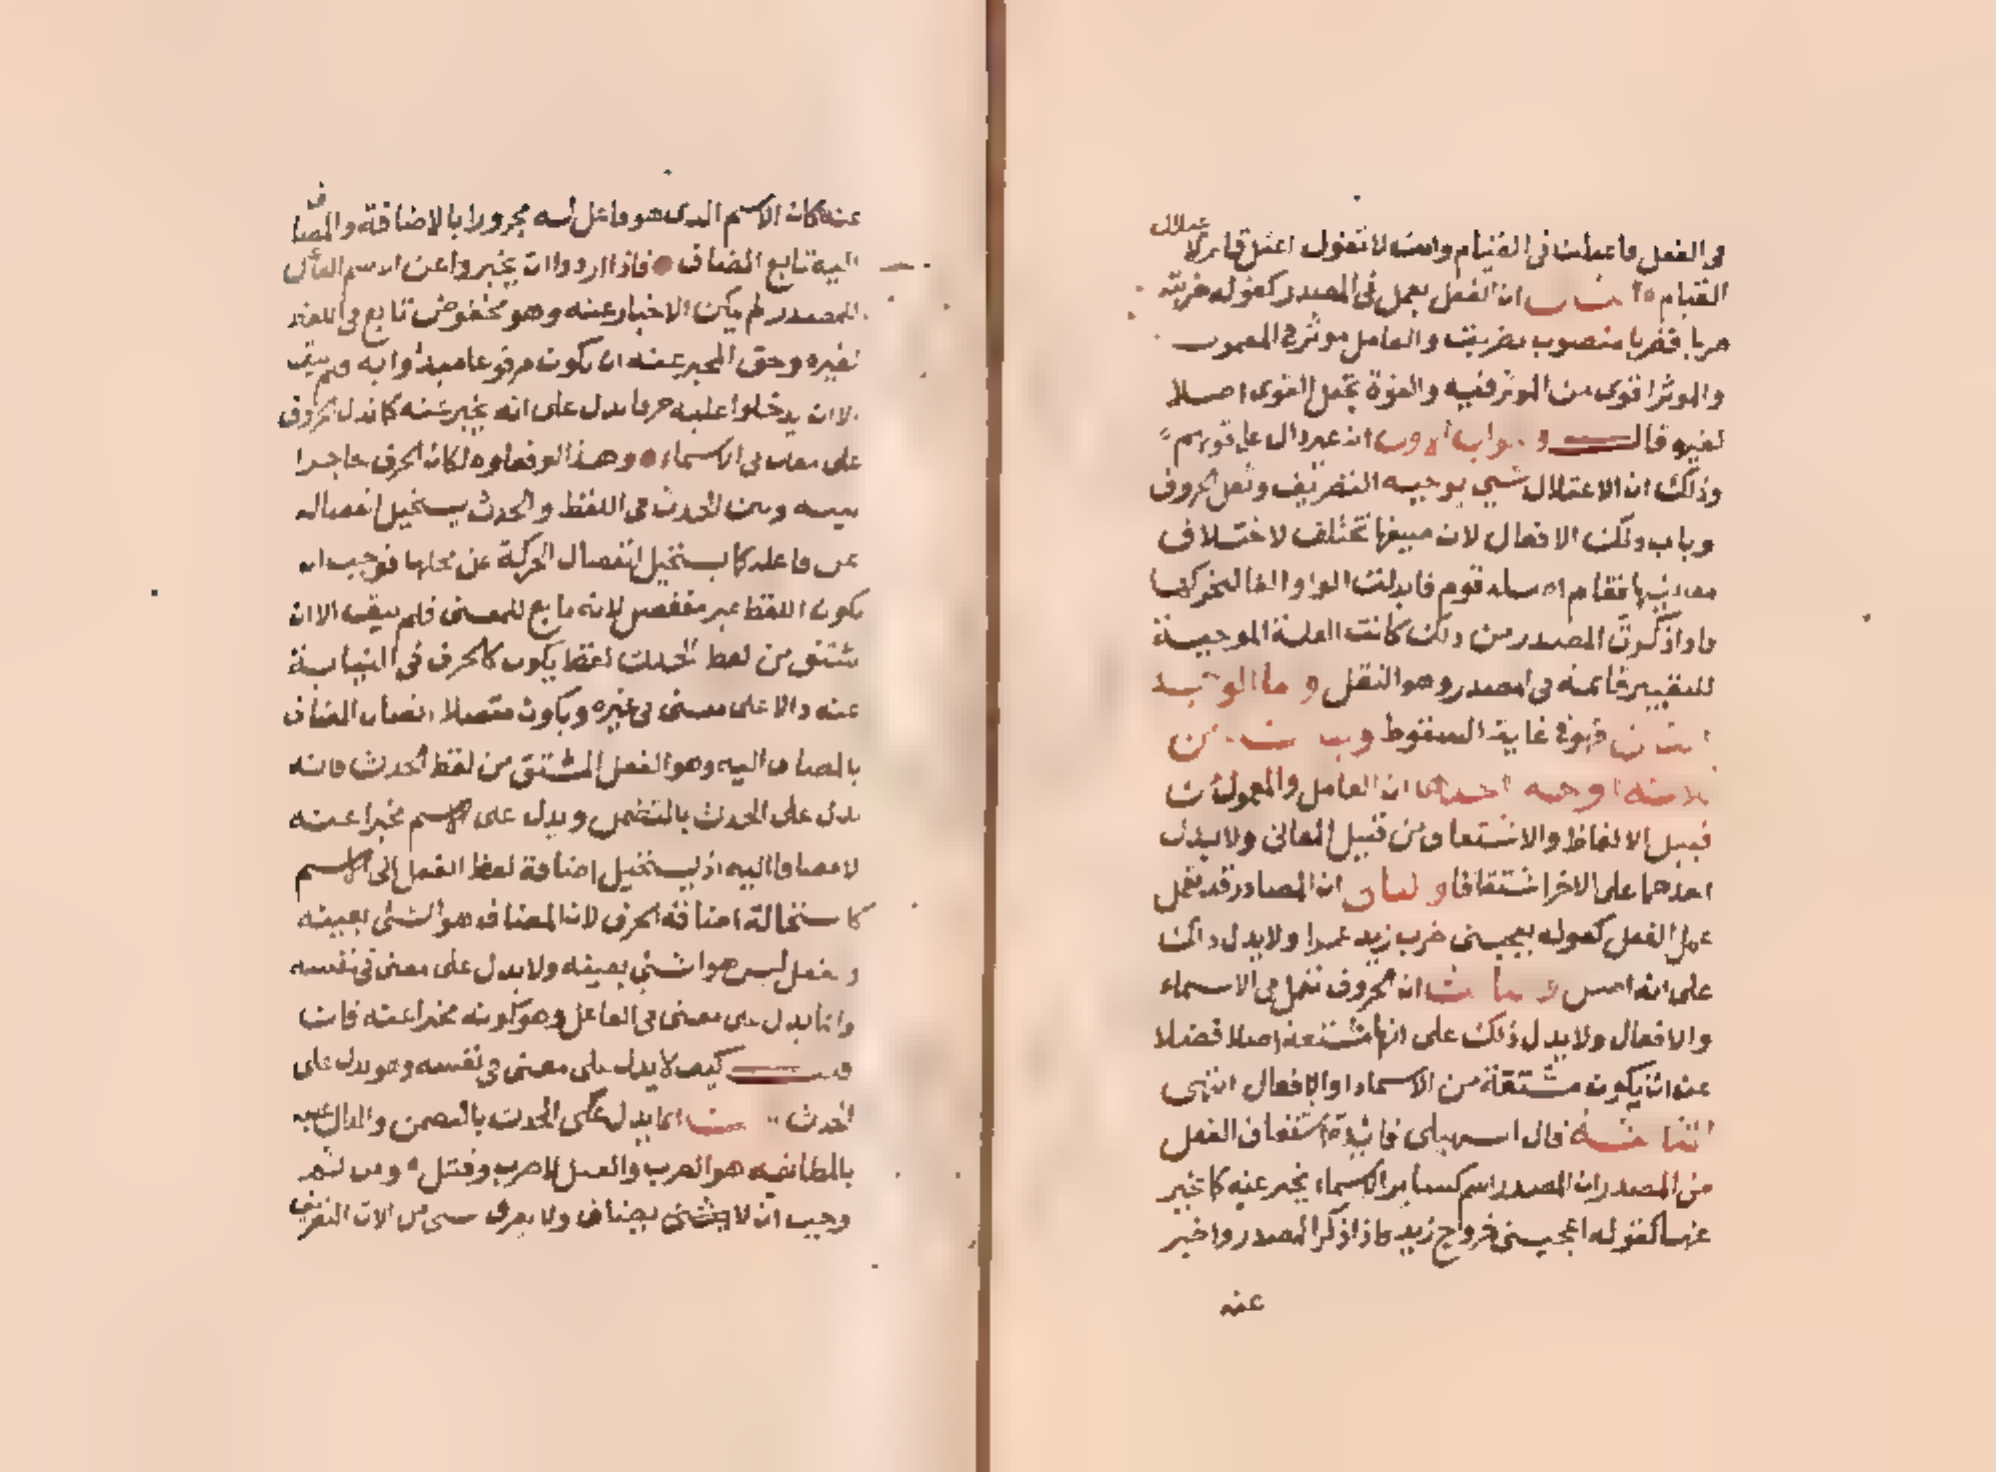 في الفعل فاعتلت في القيام وانت لا تقول اعتل قام لاعتلال
القيام ان الفعل يعمل في المصدر كقوله ضربته
ضربا فضربا منصوب بضربت والعامل موثر في المعمول
والموثر اقوى من الموثر فيه والقوة تجعل القوى اصلا
لغيره قال وجواب الاول ان غير دال على قولهم
وذلك ان الاعتلال شي يوجبه التصريف وثقل الحروف
وباب ذلك الافعال لان صيغها تختلف لاختلاف
معانيها فقام اصله قوم فابدلت الواو الفا لتحركها
فاذا ذكرت المصدر من ذلك كانت العلة الموجبة
للتغيير قائمة في المصدر وهو الثقل وما الوجه
الثاني فهو في غاية السقوط وبيانه من
ثلاثة اوجه احدها ان العامل والمعمول من
قبيل الالفاظ والاشتقاق من قبيل المعاني ولا يدل
احدهما على الاخر اشتقاقا والثاني ان المصادر قد تعمل
عمل الفعل كقوله يعجبني ضرب زيد عمرا ولا يدل ذلك
على انه اصل والثالث ان الحروف تعمل في الاسماء
والافعال ولا يدل ذلك على انها مشتقة اصلا فضلا
عن ان يكون مشتقة من الاسماء او الافعال انتهى
الثامنة قال السهيلي فائدة اشتقاق الفعل
من المصدر ان المصدر اسم كسائر الاسماء يخبر عنه كما يخبر
عنها كقوله اعجبني خروج زيد فاذا ذكر المصدر واخبر
عنه
عنه كان الاسم الذي هو فاعل له مجرورا بالاضافة والمضاف
اليه تابع المضاف فاذا ارادوا ان يخبروا عن الاسم الفاعل
للمصدر لم يكن الاخبار عنه وهو مخفوض تابع في اللفظ
لغيره وحق المخبر عنه ان يكون مرفوعا مبدوا به فلم يبق
الا ان يدخلوا عليه حرفا يدل على انه مخبر عنه كما تدل الحروف
على معان في الاسماء وهذا لو فعلوه لكان الحرف حاجزا
بينه وبين الحدث في اللفظ والحدث يستحيل انفصاله
عن فاعله كما يستحيل انفصال الحركة عن محلها فوجب ان
يكون اللفظ غير منفصل لانه تابع للمعنى فلم يبق الا ان
يشتق من لفظ الحدث لفظ يكون كالحرف في النيابة
عنه دالا على معنى في غيره ويكون متصلا اتصال المضاف
بالمضاف اليه وهو الفعل المشتق من لفظ الحدث فانه
يدل على الحدث بالتضمن ويدل على الاسم مخبرا عنه
لا مضافا اليه اذ يستحيل اضافة لفظ الفعل الى الاسم
كاستحالة اضافة الحرف لان المضاف هو الشئ بعينه
والفعل ليس هو الشئ بعينه ولا يدل على معنى في نفسه
وانما يدل على معنى في الفاعل وهو كونه مخبرا عنه فان
قلت كيف لا يدل على معنى في نفسه وهو يدل على
الحدث قلت انما يدل على الحدث بالتضمن والدال عليه
بالمطابقة هو الضرب والقتل لا ضرب وقتل ومن ثم
وجب ان لا يضاف ولا يعرف بشئ من الات التعريف